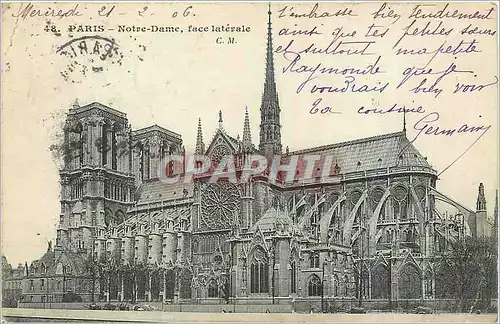 Mercredi 21-2 06.
48. PARIS - Notre-Dame, face latérale
C. M.
PARIS
J'embrasse bien tendrement
ainsi que tes petites sœurs
et surtout ma petite
Raymonde que je
voudrais bien voir
Ta cousine
Germaine
CPAPHIL